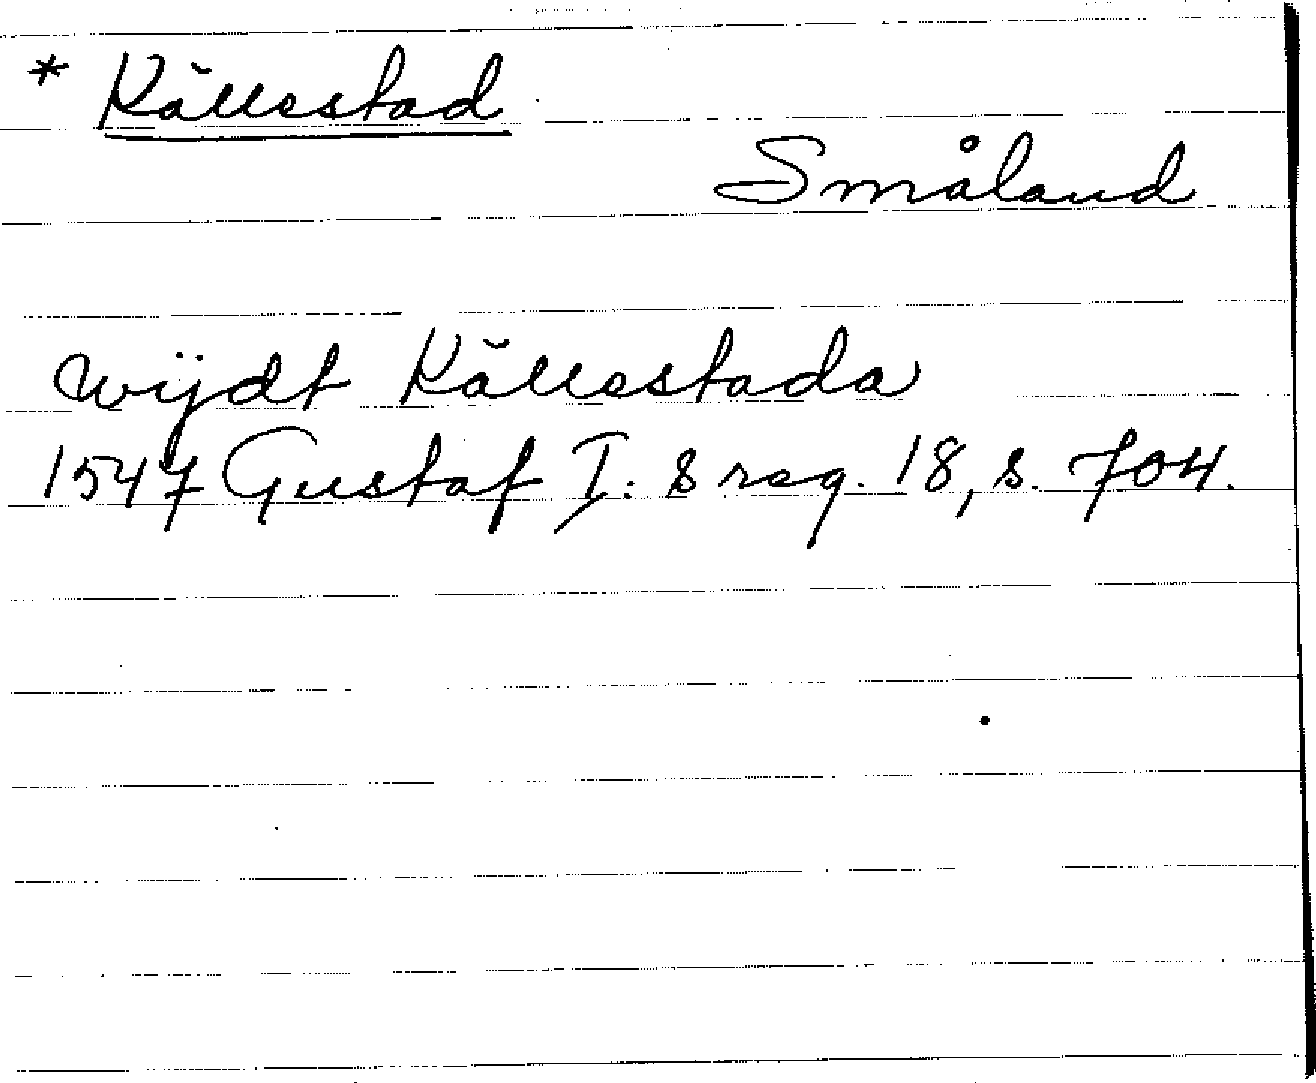 * Källestad
Småland
wijdt Källestada
1547 Gustaf I:s reg. 18, s. 704.